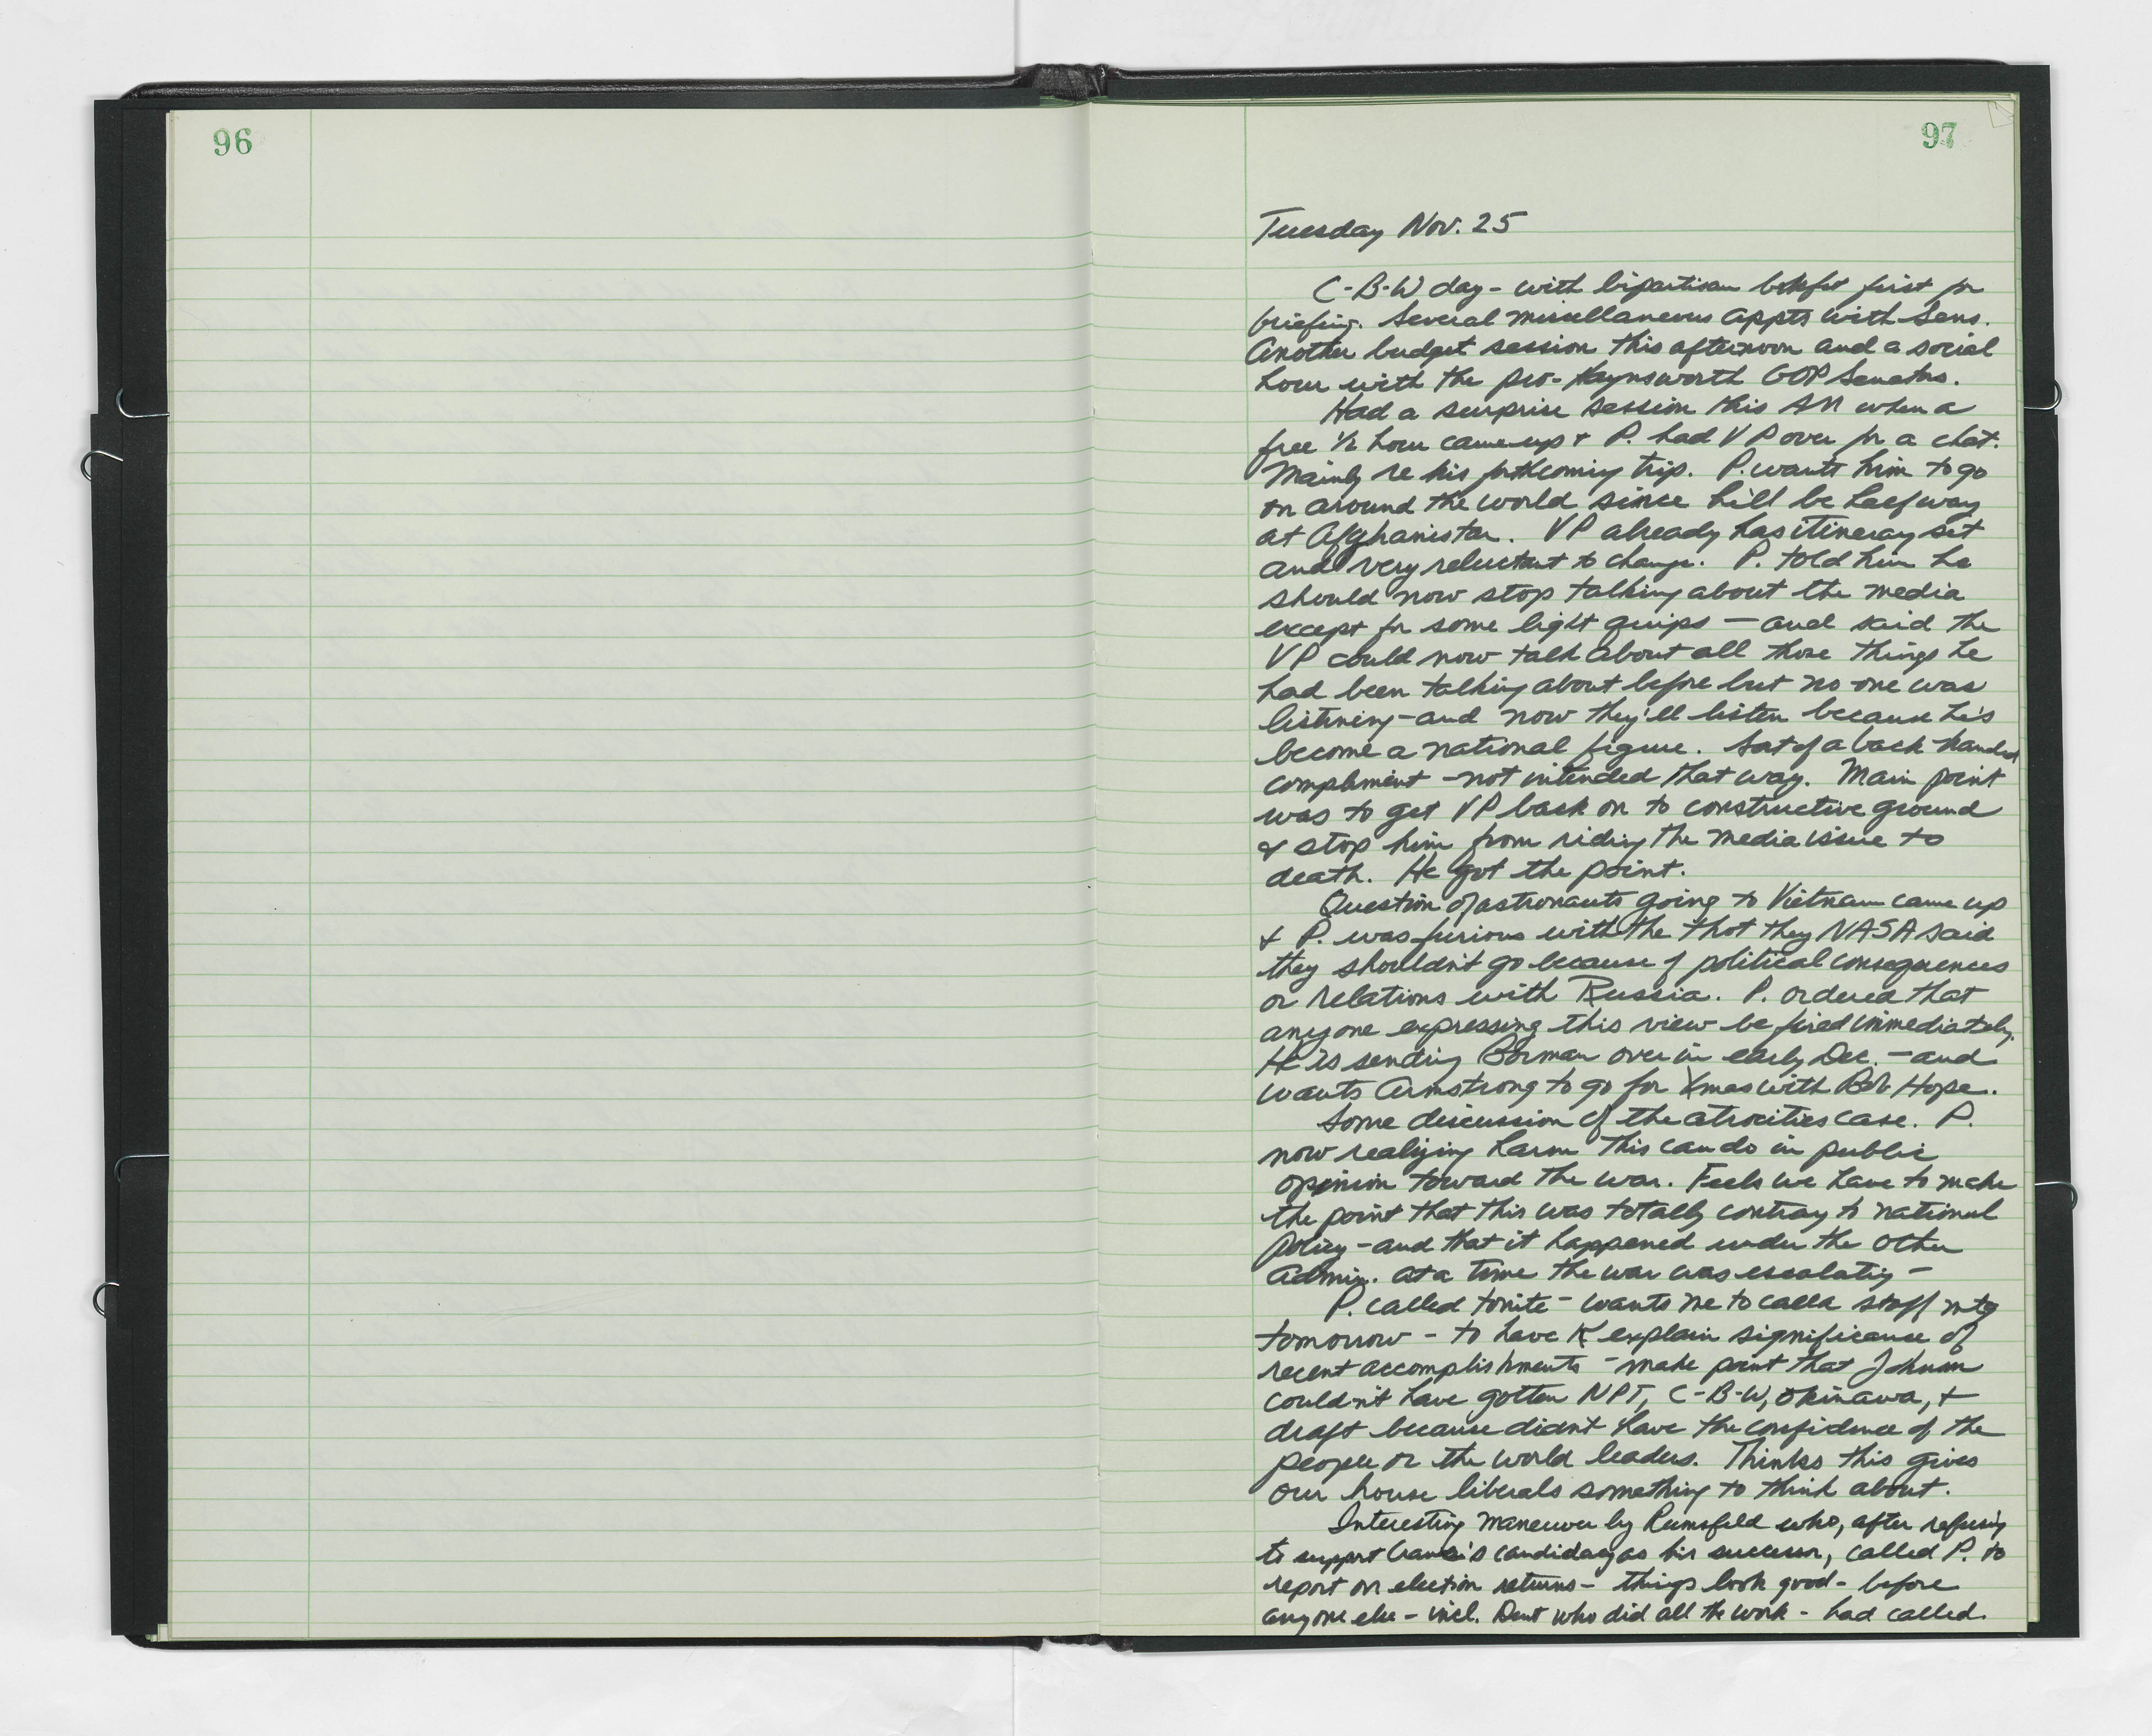 96
97
Tuesday Nov. 25
C-B-W day - with bipartisan bkfst first for
briefing. Several miscellaneous appts with Sens.
Another budget session this afternoon and a social
hour with the pro-Haynsworth GOP Senators.
Had a surprise session this AM when a
free ½ hour came up + P. had VP over for a chat.
Mainly re his forthcoming trip. P. wants him to go
on around the world since he'll be half way
at Afghanistan. VP already has itineray set
and very reluctant to change. P. told him he
should now stop talking about the media
except for some light quips — and said the
VP could now talk about all those things he
had been talking about before but no one was
listening - and now they'll listen because he's
become a national figure. Sort of a back-handed
compliment - not intended that way. Main point
was to get VP back on to constructive ground
& stop him from riding the media issue to
death. He got the point.
Question of astronauts going to Vietnam came up
+ P. was furious with the thot they NASA said
they shouldn't go because of political consequences
or relations with Russia. P. ordered that
anyone expressing this view be fired immediately.
He is sending Borman over in early Dec. — and
wants Armstrong to go for Xmas with Bob Hope.
Some discussion of the atrocities case. P.
now realizing harm this can do in public
opinion toward the war. Feels we have to make
the point that this was totally contray to national
policy - and that it happened under the other
Admin. at a time the war was escalatig -
P. called tonite - wants me to call a staff mtg
tomorrow - to have K explain significance of
recent accomplishments - make point that Johnson
couldn't have gotten NPT, C-B-W, Okinawa, +
draft because didn't have the confidence of the
people or the world leaders. Thinks this gives
our house liberals something to think about.
Interesting maneuver by Rumsfeld who, after refusing
to support Crane's candidacy as his successor, called P. to
report on election returns - things look good - before
anyone else - incl. Dent who did all the work - had called.